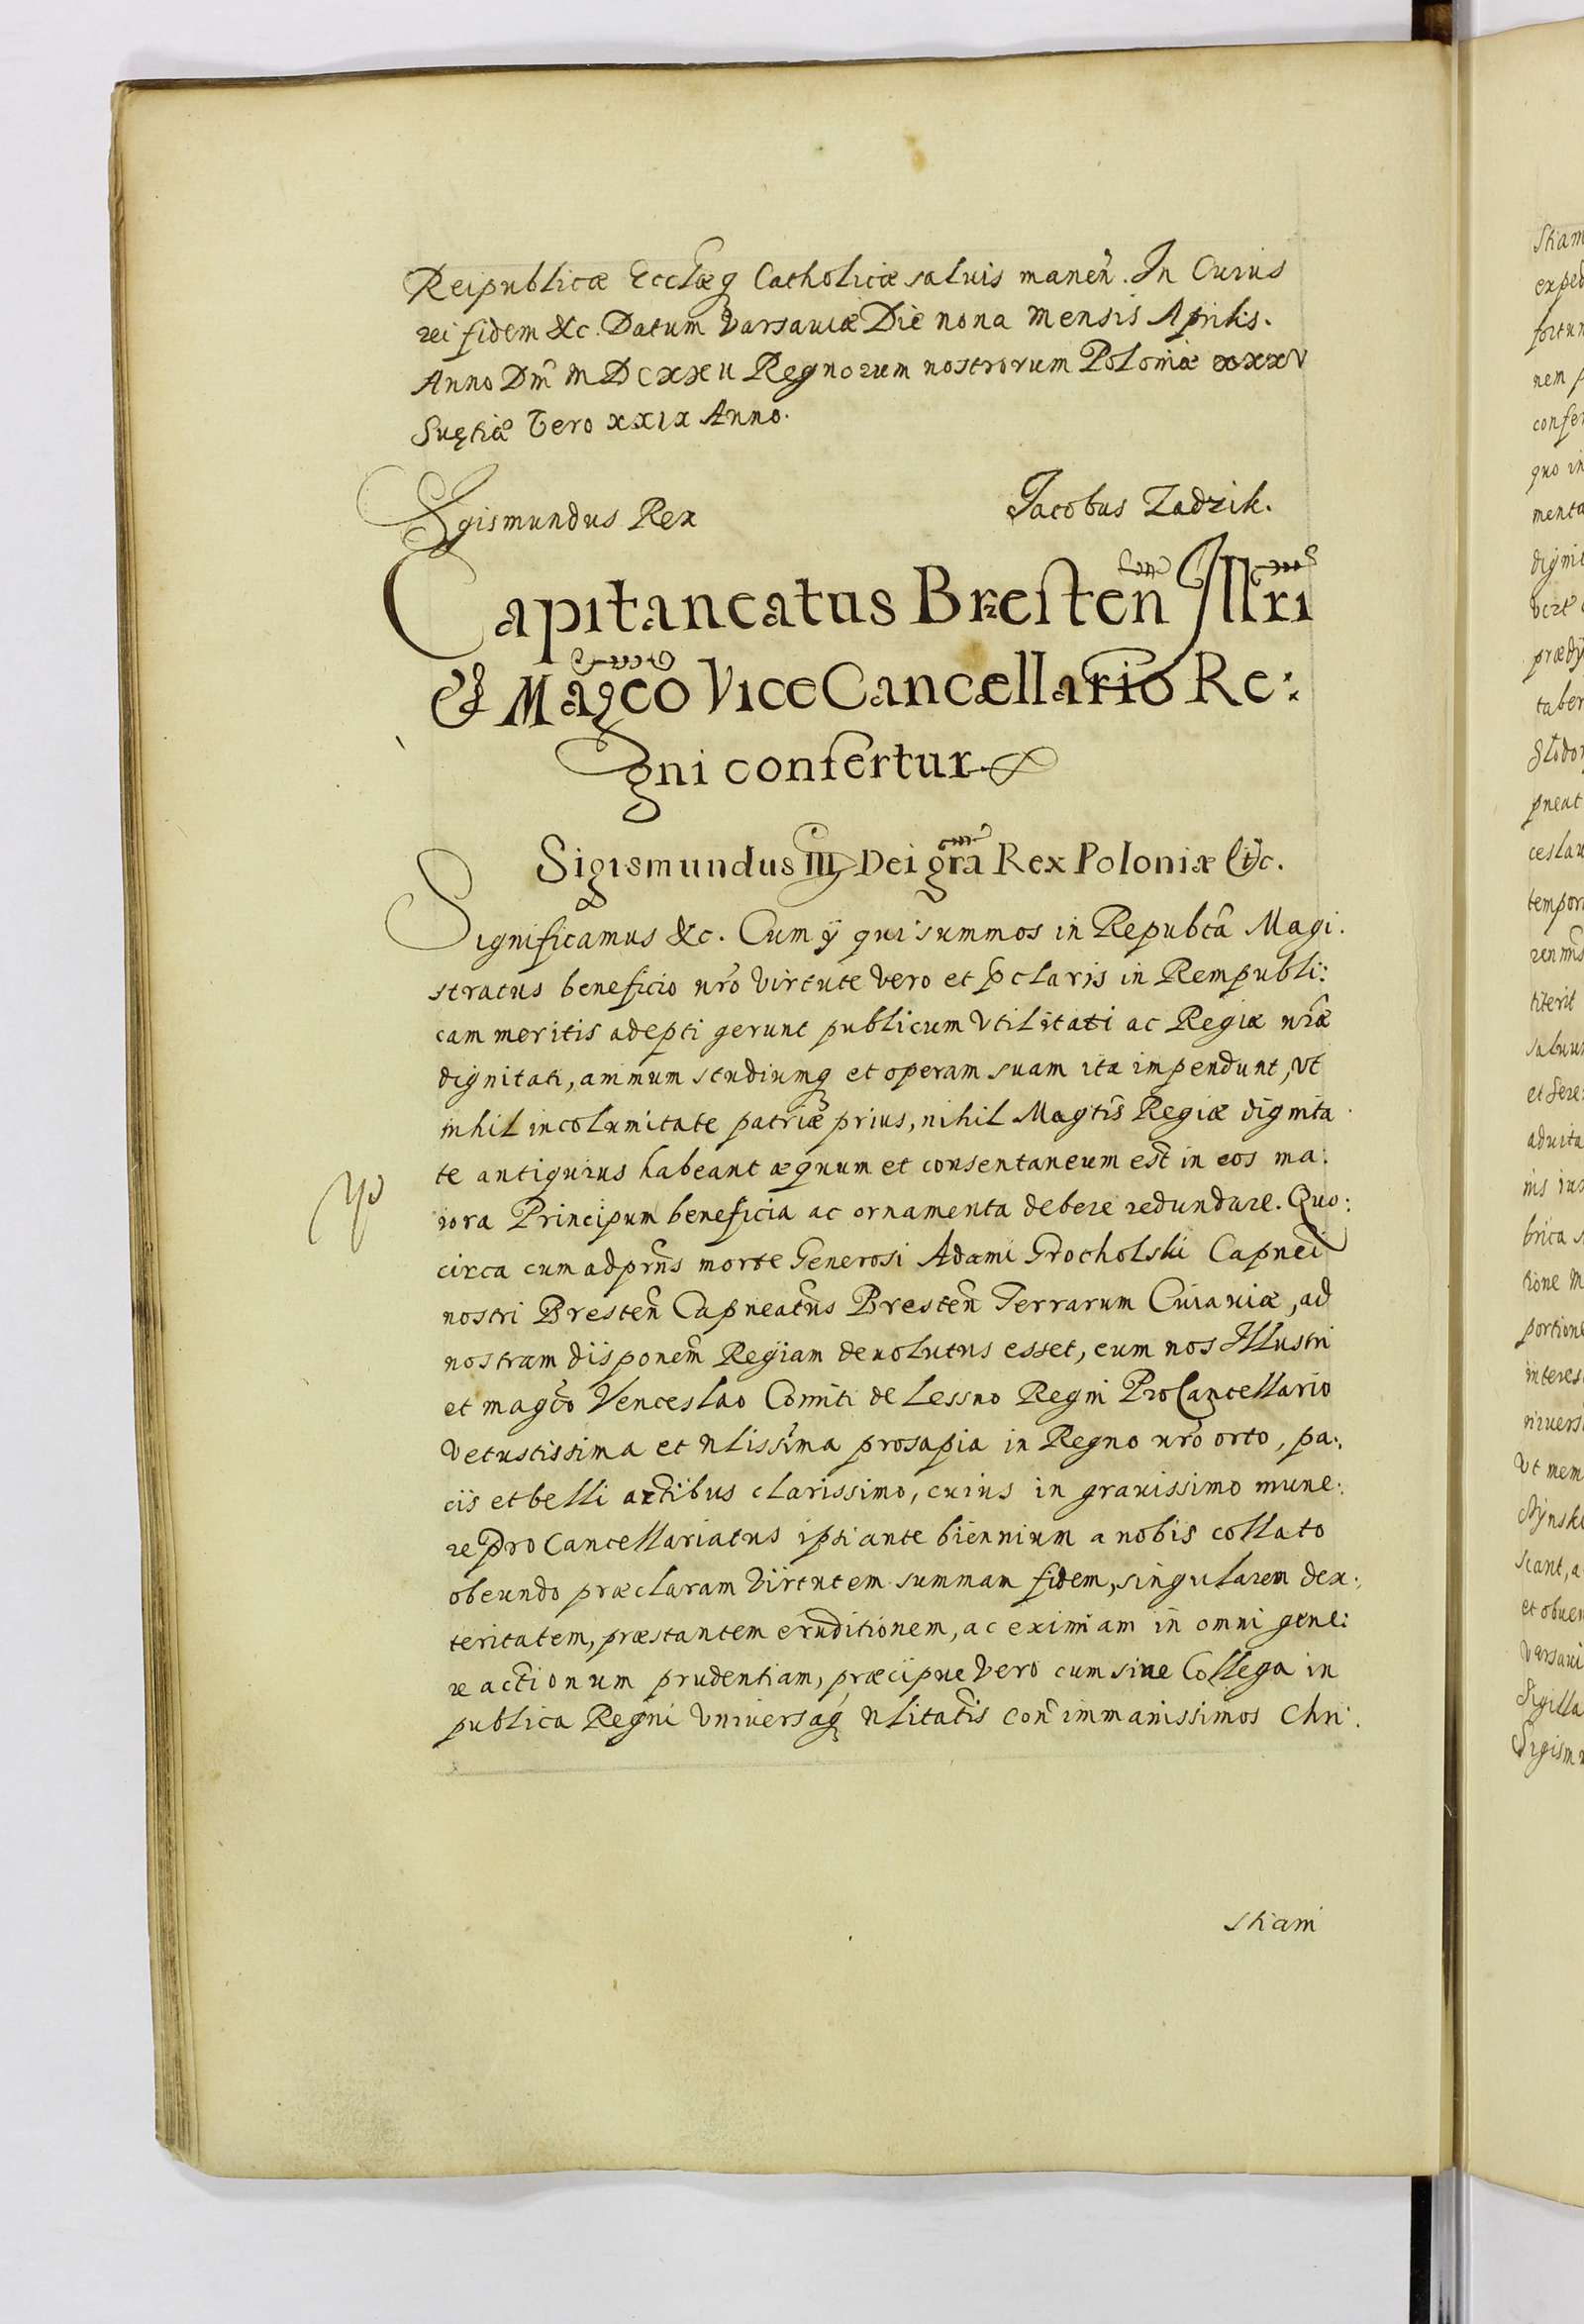 Reipublicæ Ecclæq Catholicæ saluis maneñ. In Cuius
rei fidem &c. Datum Varsauiæ Die nona Mensis Aprilis.
Anno Dm̃ MDCXXII Regnorum nostrorum Poloniæ xxxv
Suętiæ Vero XXIX Anno.
Sigismundus Rex
Jacobus Zadzik.
Capitaneatus Bresten̄ Illri
& Mag̃co ViceCancællario Re:
gni confertur
Sigismundus III Dei gr̃a Rex Poloniæ &c.
Significamus &c. Cum ij qui summos in Repubcâ Magi.
stratus beneficio nr̃o virtute vero et p̃claris in Rempubli:
cam meritis adepti gerunt publicum Vtilitati ac Regiæ nr̃æ
dignitati, animum studiumq et operam suam ita impendunt, Vt
nihil incolumitate patriæ prius, nihil Magtĩs Regiæ dignita
te antiquius habeant æquum et consentaneum est in eos ma:
iora Principum beneficia ac ornamenta debere redundare. Quo:
circa cum ad prñs morte Generosi Adami Grocholski Capnei
nostri Bresteñ Capneatũs Bresteñ Terrarum Cuiauiæ, ad
nostram disponem̃ Regiam deuolutus esset, eum nos Illustri
et magc̃o Venceslao Comiti de Lessno Regni ProCancellario
Vetustissima et nlissĩma prosapia in Regno nr̃o orto, pa:
cis et belli artibus clarissimo, cuius in grauissimo mune:
re ProCancellariatus ipsi ante biennium a nobis collato
obeundo præclaram Virtutem summam fidem, singularem dex:
teritatem, præstantem eruditionem, ac eximiam in omni gene:
re actionum prudentiam, præcipue vero cum sine Collega in
publica Regni Vniversaq nlitatĩs coñ immanissimos Chri:
stiani
Stiam
exped
fortun
nem p
confer
quo in
menta
digni
prædij
taber
pneat
ceslau
tempor
titerit
saluum
et Sere
aduita
nis iur
brica s
tione m
portione
interes
niuersi
Vt mem
scant, a
et obuen
Varsaui
Sigilla
Sigism